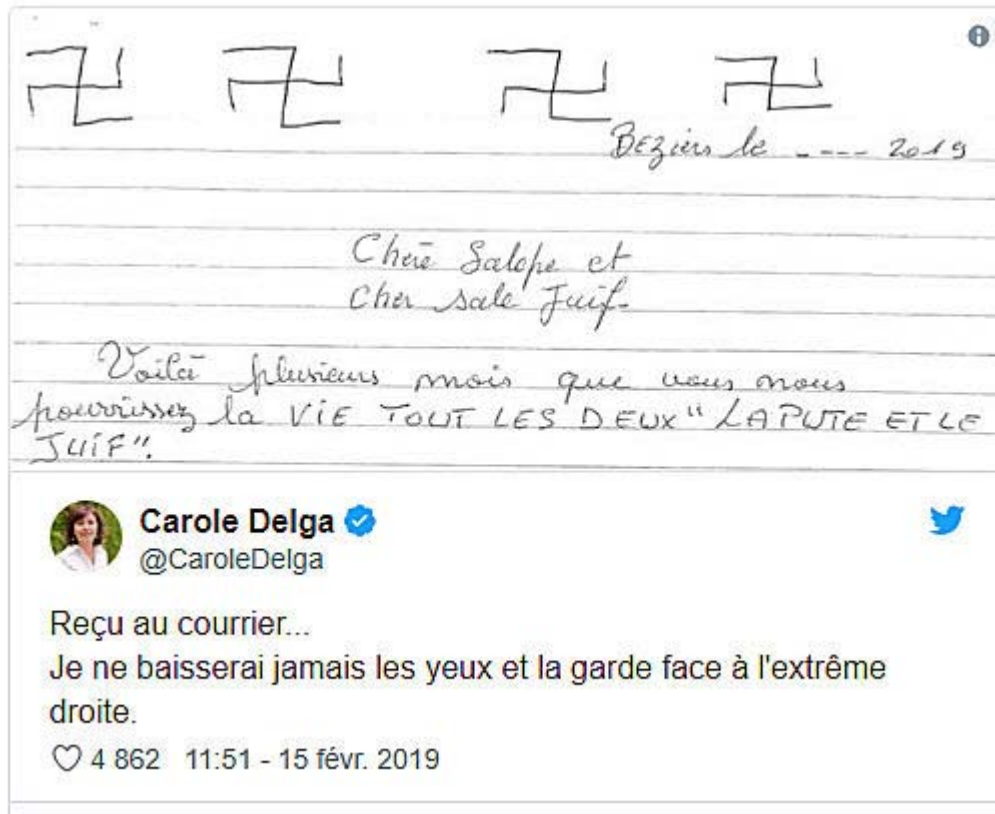 Beziers le ----- 2019
Chère Salope et
Cher sale Juif.
Voilà plusieurs mois que vous nous
pourrissez la VIE TOUT LES DEUX "LA PUTE ET LE
JUIF".
Carole Delga
@CaroleDelga
Reçu au courrier...
Je ne baisserai jamais les yeux et la garde face à l'extrême
droite.
4 862 11:51 - 15 févr. 2019